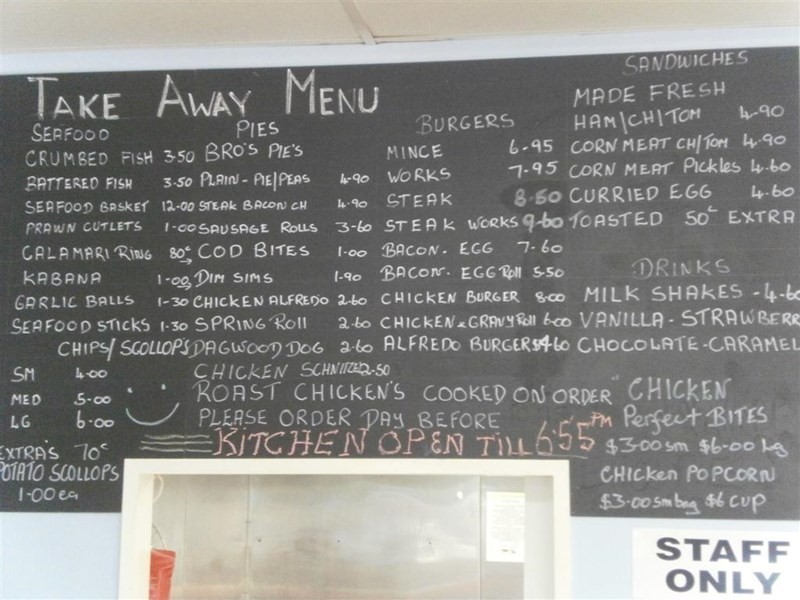 TAKE AWAY MENU
SEAFOOD
CRUMBED FISH 3.50
BATTERED FISH 3.50
SEAFOOD BASKET 12.00
PRAWN CUTLETS 1.00
CALAMARI RING 80c
KABANA 1.00
GARLIC BALLS 1-30
SEAFOOD STICKS 1.30
CHIPS/SCOLLOPS
SM 4.00
MED 5.00
LG 6.00
EXTRA'S 70c
POTATO SCOLLOPS
1.00 ea
PIES
BRO'S PIE'S
PLAIN-PIE/PEAS 4.90
STEAK BACON CH 4.90
SAUSAGE ROLLS 3-60
COD BITES 1.00
DIM SIMS 1.90
CHICKEN ALFREDO 2.60
SPRING ROLL 2.60
DAGWOOD DOG 2.60
CHICKEN SCHNITZEL 2.50
ROAST CHICKEN'S COOKED ON ORDER
PLEASE ORDER DAY BEFORE
KITCHEN OPEN TILL 6.55 PM
BURGERS
MINCE 6.95
WORKS 7.95
STEAK 8.50
STEAK WORKS 9.60
BACON. EGG 7.60
BACON. EGG Roll 5.50
CHICKEN BURGER 8.00
CHICKEN & GRAVY Roll 6.00
ALFREDO BURGER
SANDWICHES
MADE FRESH
HAM/CH/TOM 4.90
CORN MEAT CH/TOM 4.90
CORN MEAT Pickles 4.60
CURRIED EGG 4.60
TOASTED 50c EXTRA
DRINKS
MILK SHAKES - 4.60
VANILLA-STRAWBERR
CHOCOLATE-CARAMEL
CHICKEN
Perfect BITES
$3.00 sm $6.00 Lg
CHICKEN POPCORN
$3.00 sm bag $6 CUP
STAFF
ONLY